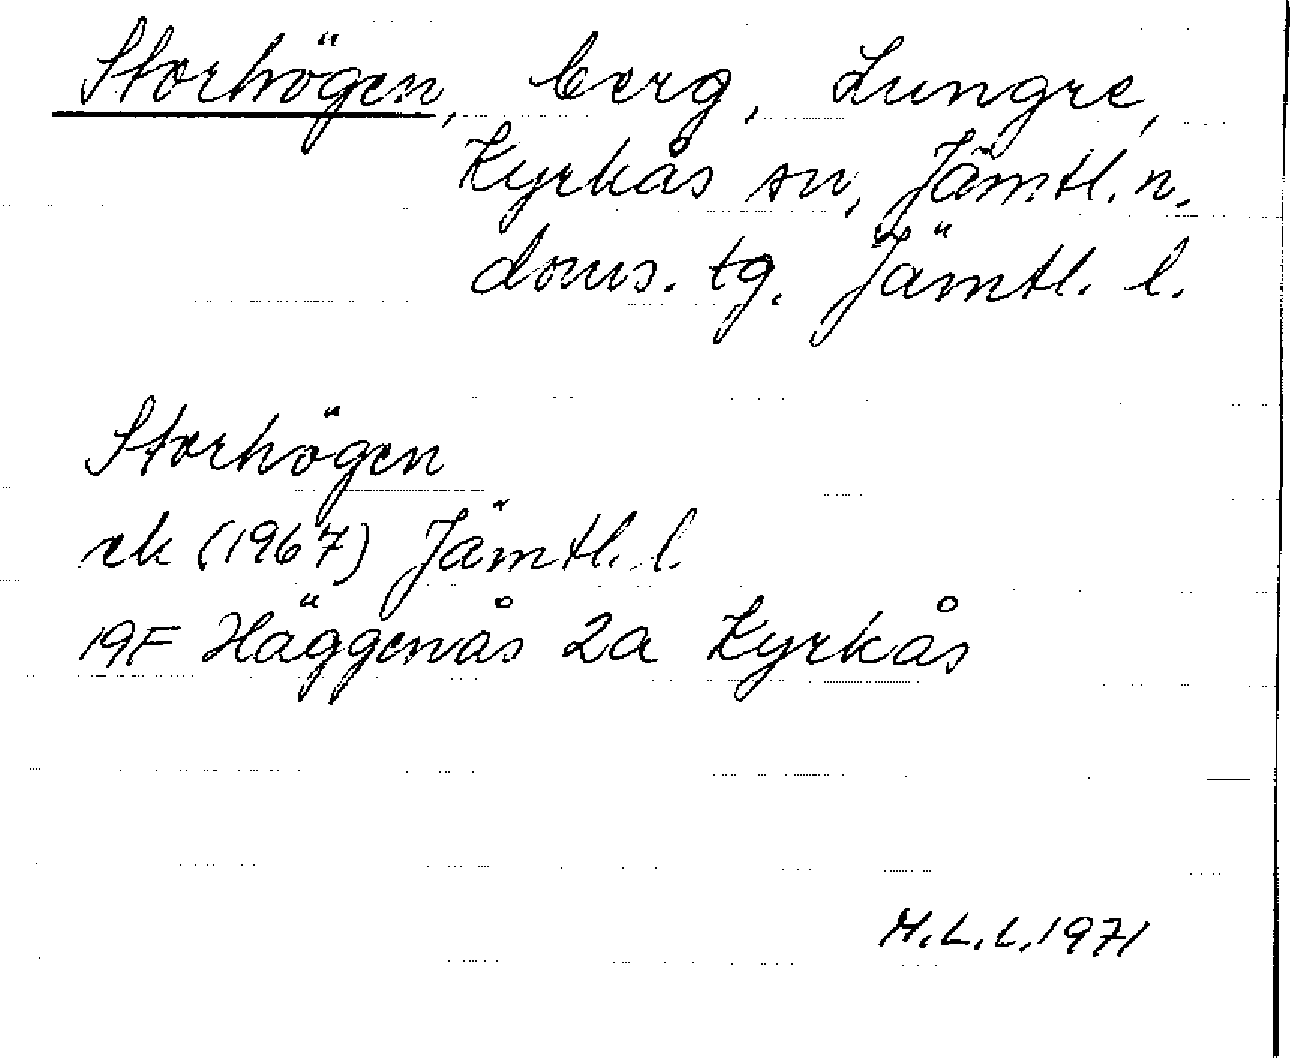 Storhögen, berg, Lungre,
Kyrkås sn, Jämtl. n.
doms. tg. Jämtl. l.
Storhögen
ek (1967) Jämtl. l.
19F Häggenås 2a Kyrkås
M.L.L. 1971